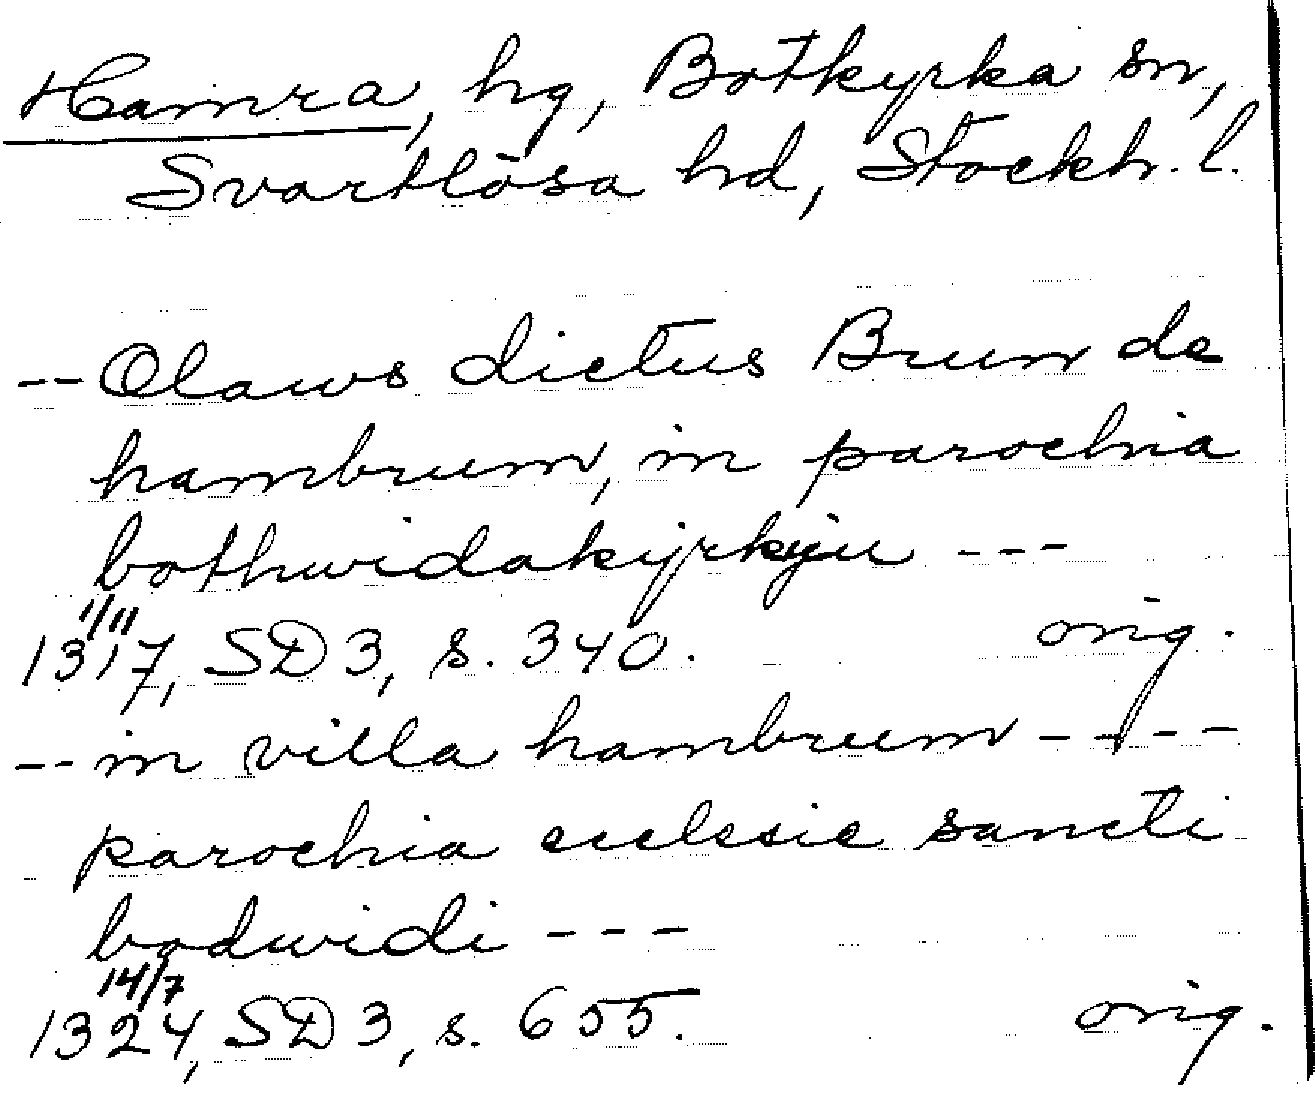 Hamra, hg, Botkyrka sn,
Svartlösa hd, Stockh. l.
-- Olaws dictus Brun de
hambrum, in parochia
bothwidakyrkyu ---
1/11
1317, SD 3, s. 340. orig.
-- in villa hambrum ----
parochia ecclesie sancti
bodwidi ---
14/7
1324, SD 3, s. 655. orig.